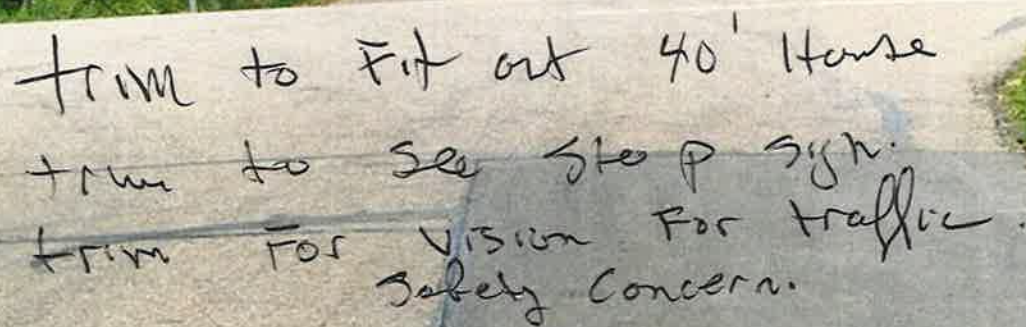 trim to Fit out 40' House
trim to See Stop Sign.
trim For Vision For traffic.
Safety Concern.